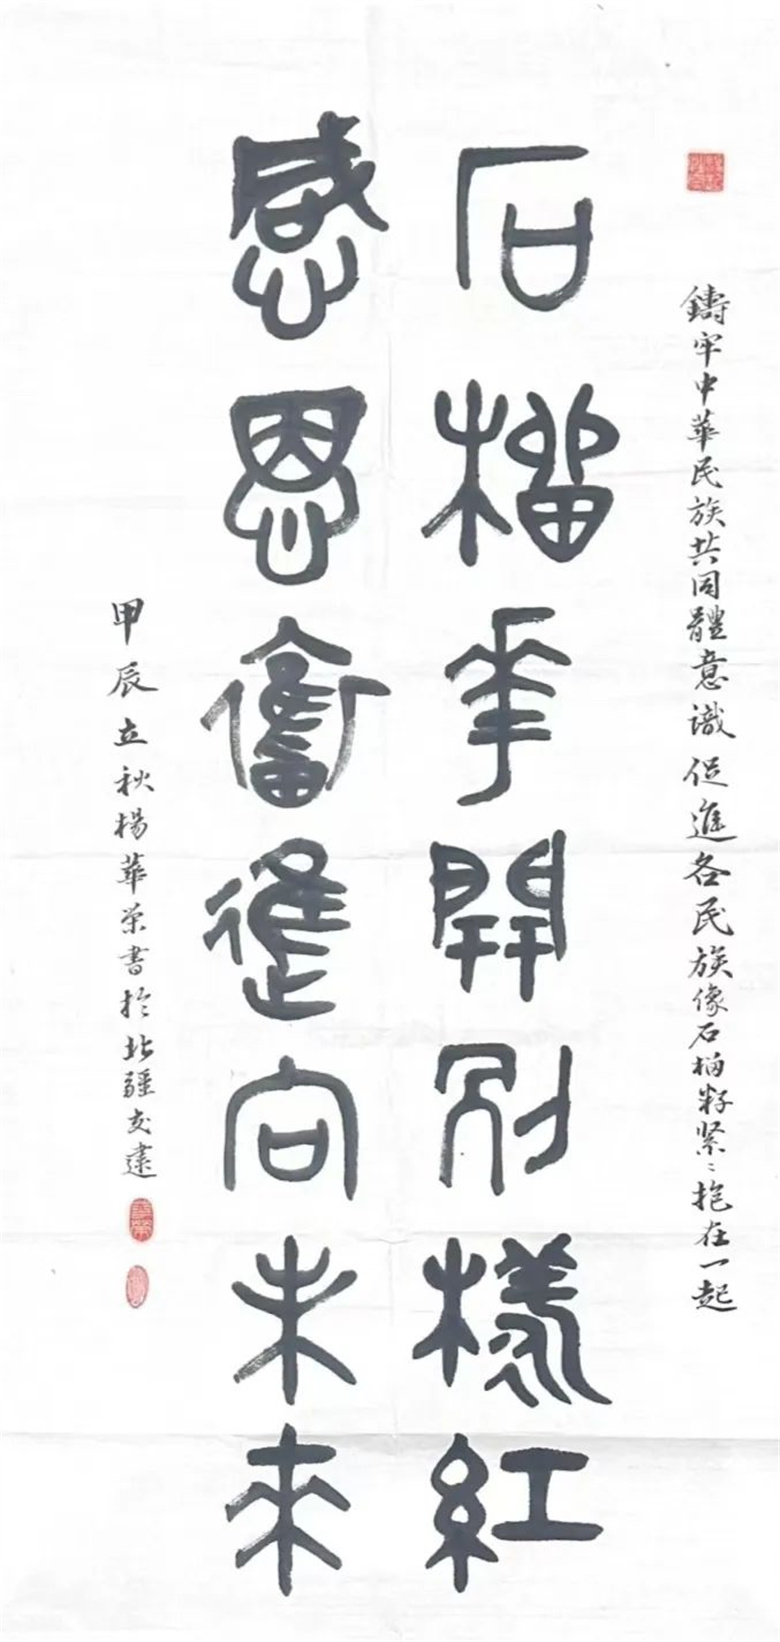 鑄牢中華民族共同體意識促進各民族像石榴籽緊〻抱在一起
石榴華開别樣紅
感恩奮進向未來
甲辰立秋楊華榮書於北疆交建